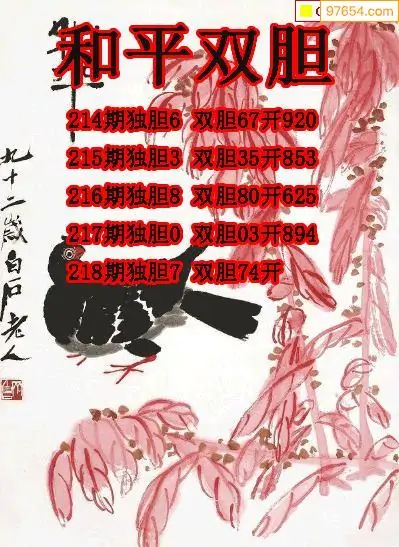 97654.com
和平双胆
214期独胆6 双胆67开920
215期独胆3 双胆35开853
216期独胆8 双胆80开625
217期独胆0 双胆03开894
218期独胆7 双胆74开
九十二岁白石老人